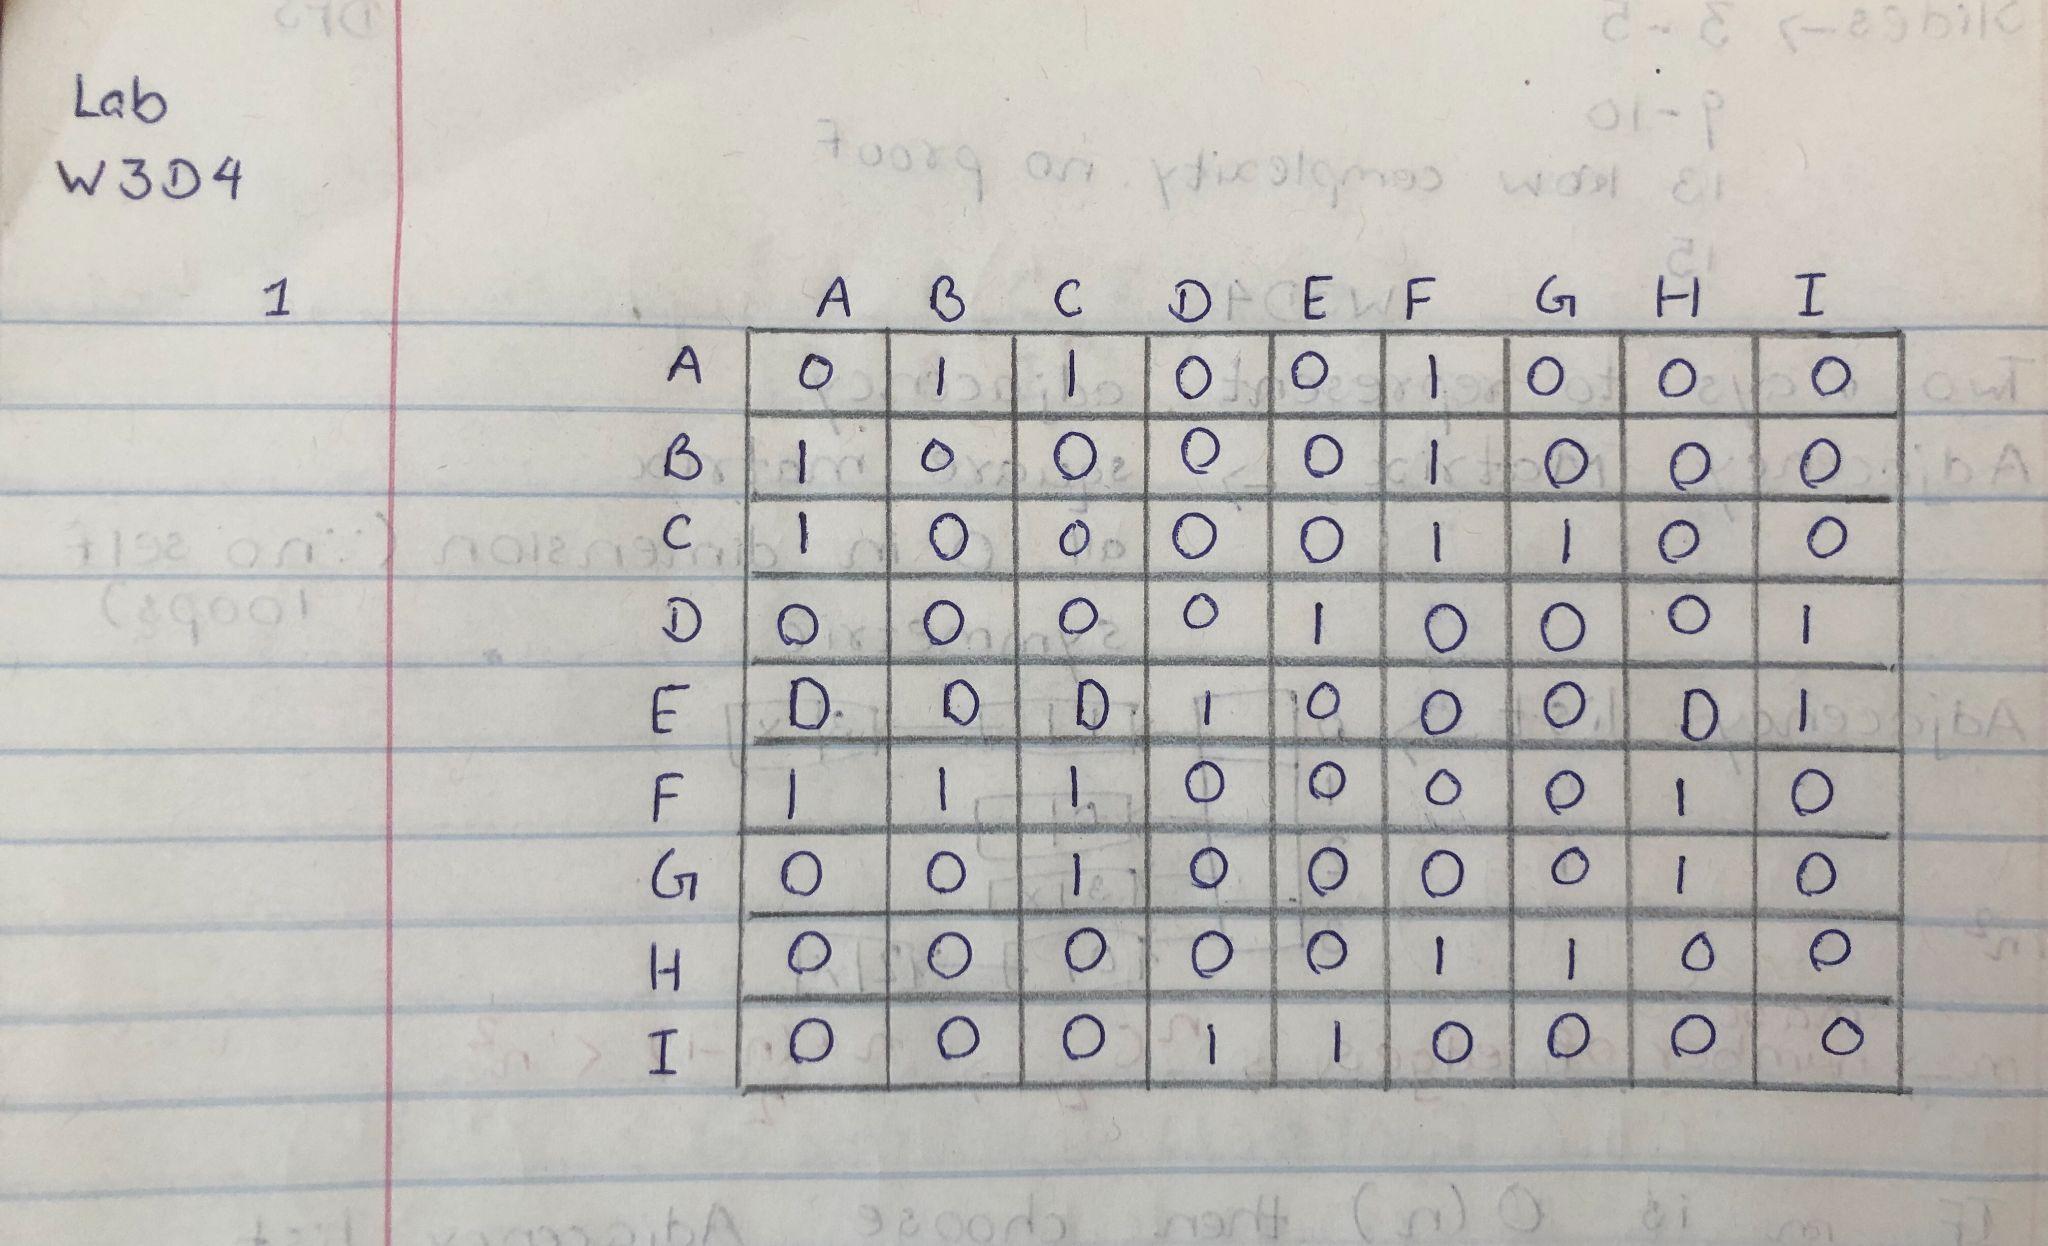 Lab
W3D4
1
A B C D E F G H I
A 0 1 1 0 0 1 0 0 0
B 1 0 0 0 0 1 0 0 0
C 1 0 0 0 0 1 1 0 0
D 0 0 0 0 1 0 0 0 1
E 0 0 0 1 0 0 0 0 1
F 1 1 1 0 0 0 0 1 0
G 0 0 1 0 0 0 0 1 0
H 0 0 0 0 0 1 1 0 0
I 0 0 0 1 1 0 0 0 0